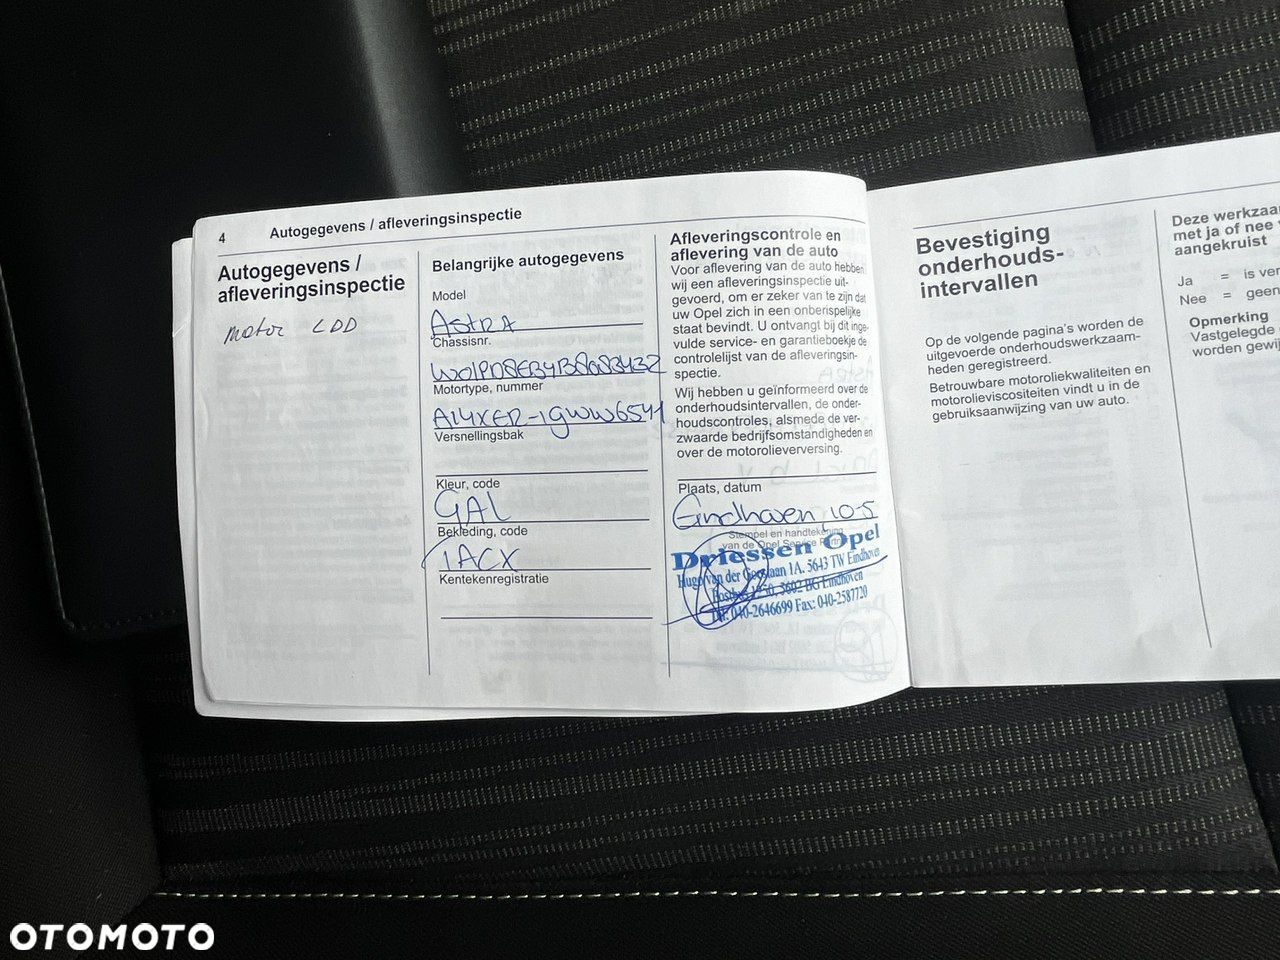 4 Autogegevens / afleveringsinspectie
Autogegevens /
afleveringsinspectie
motor LDD
Belangrijke autogegevens
Model
Astra
Chassisnr.
Motortype, nummer
A14XER-19WW6541
Versnellingsbak
Kleur, code
GAL
Bekleding, code
1ACX
Kentekenregistratie
Afleveringscontrole en
aflevering van de auto
Voor aflevering van de auto hebben
wij een afleveringsinspectie uit-
gevoerd, om er zeker van te zijn dat
uw Opel zich in een onberispelijke
staat bevindt. U ontvangt bij dit inge-
vulde service- en garantieboekje de
controlelijst van de afleveringsin-
spectie.
Wij hebben u geïnformeerd over de
onderhoudsintervallen, de onder-
houdscontroles, alsmede de ver-
zwaarde bedrijfsomstandigheden en
over de motorolieverversing.
Plaats, datum
Eindhoven 10-5
Stempel en handtekening
van de Opel Service Partner
Driessen Opel
Hugo van der Goeslaan 1A. 5643 TW Eindhoven
Postbus 5602 BG Eindhoven
Tel: 040-2646699 Fax: 040-2587720
Bevestiging
onderhouds-
intervallen
Op de volgende pagina's worden de
uitgevoerde onderhoudswerkzaam-
heden geregistreerd.
Betrouwbare motoroliekwaliteiten en
motorolieviscositeiten vindt u in de
gebruiksaanwijzing van uw auto.
Deze werkzaa
met ja of nee
aangekruist
Ja = is ver
Nee = geen
Opmerking
Vastgelegde
worden gewij
OTOMOTO